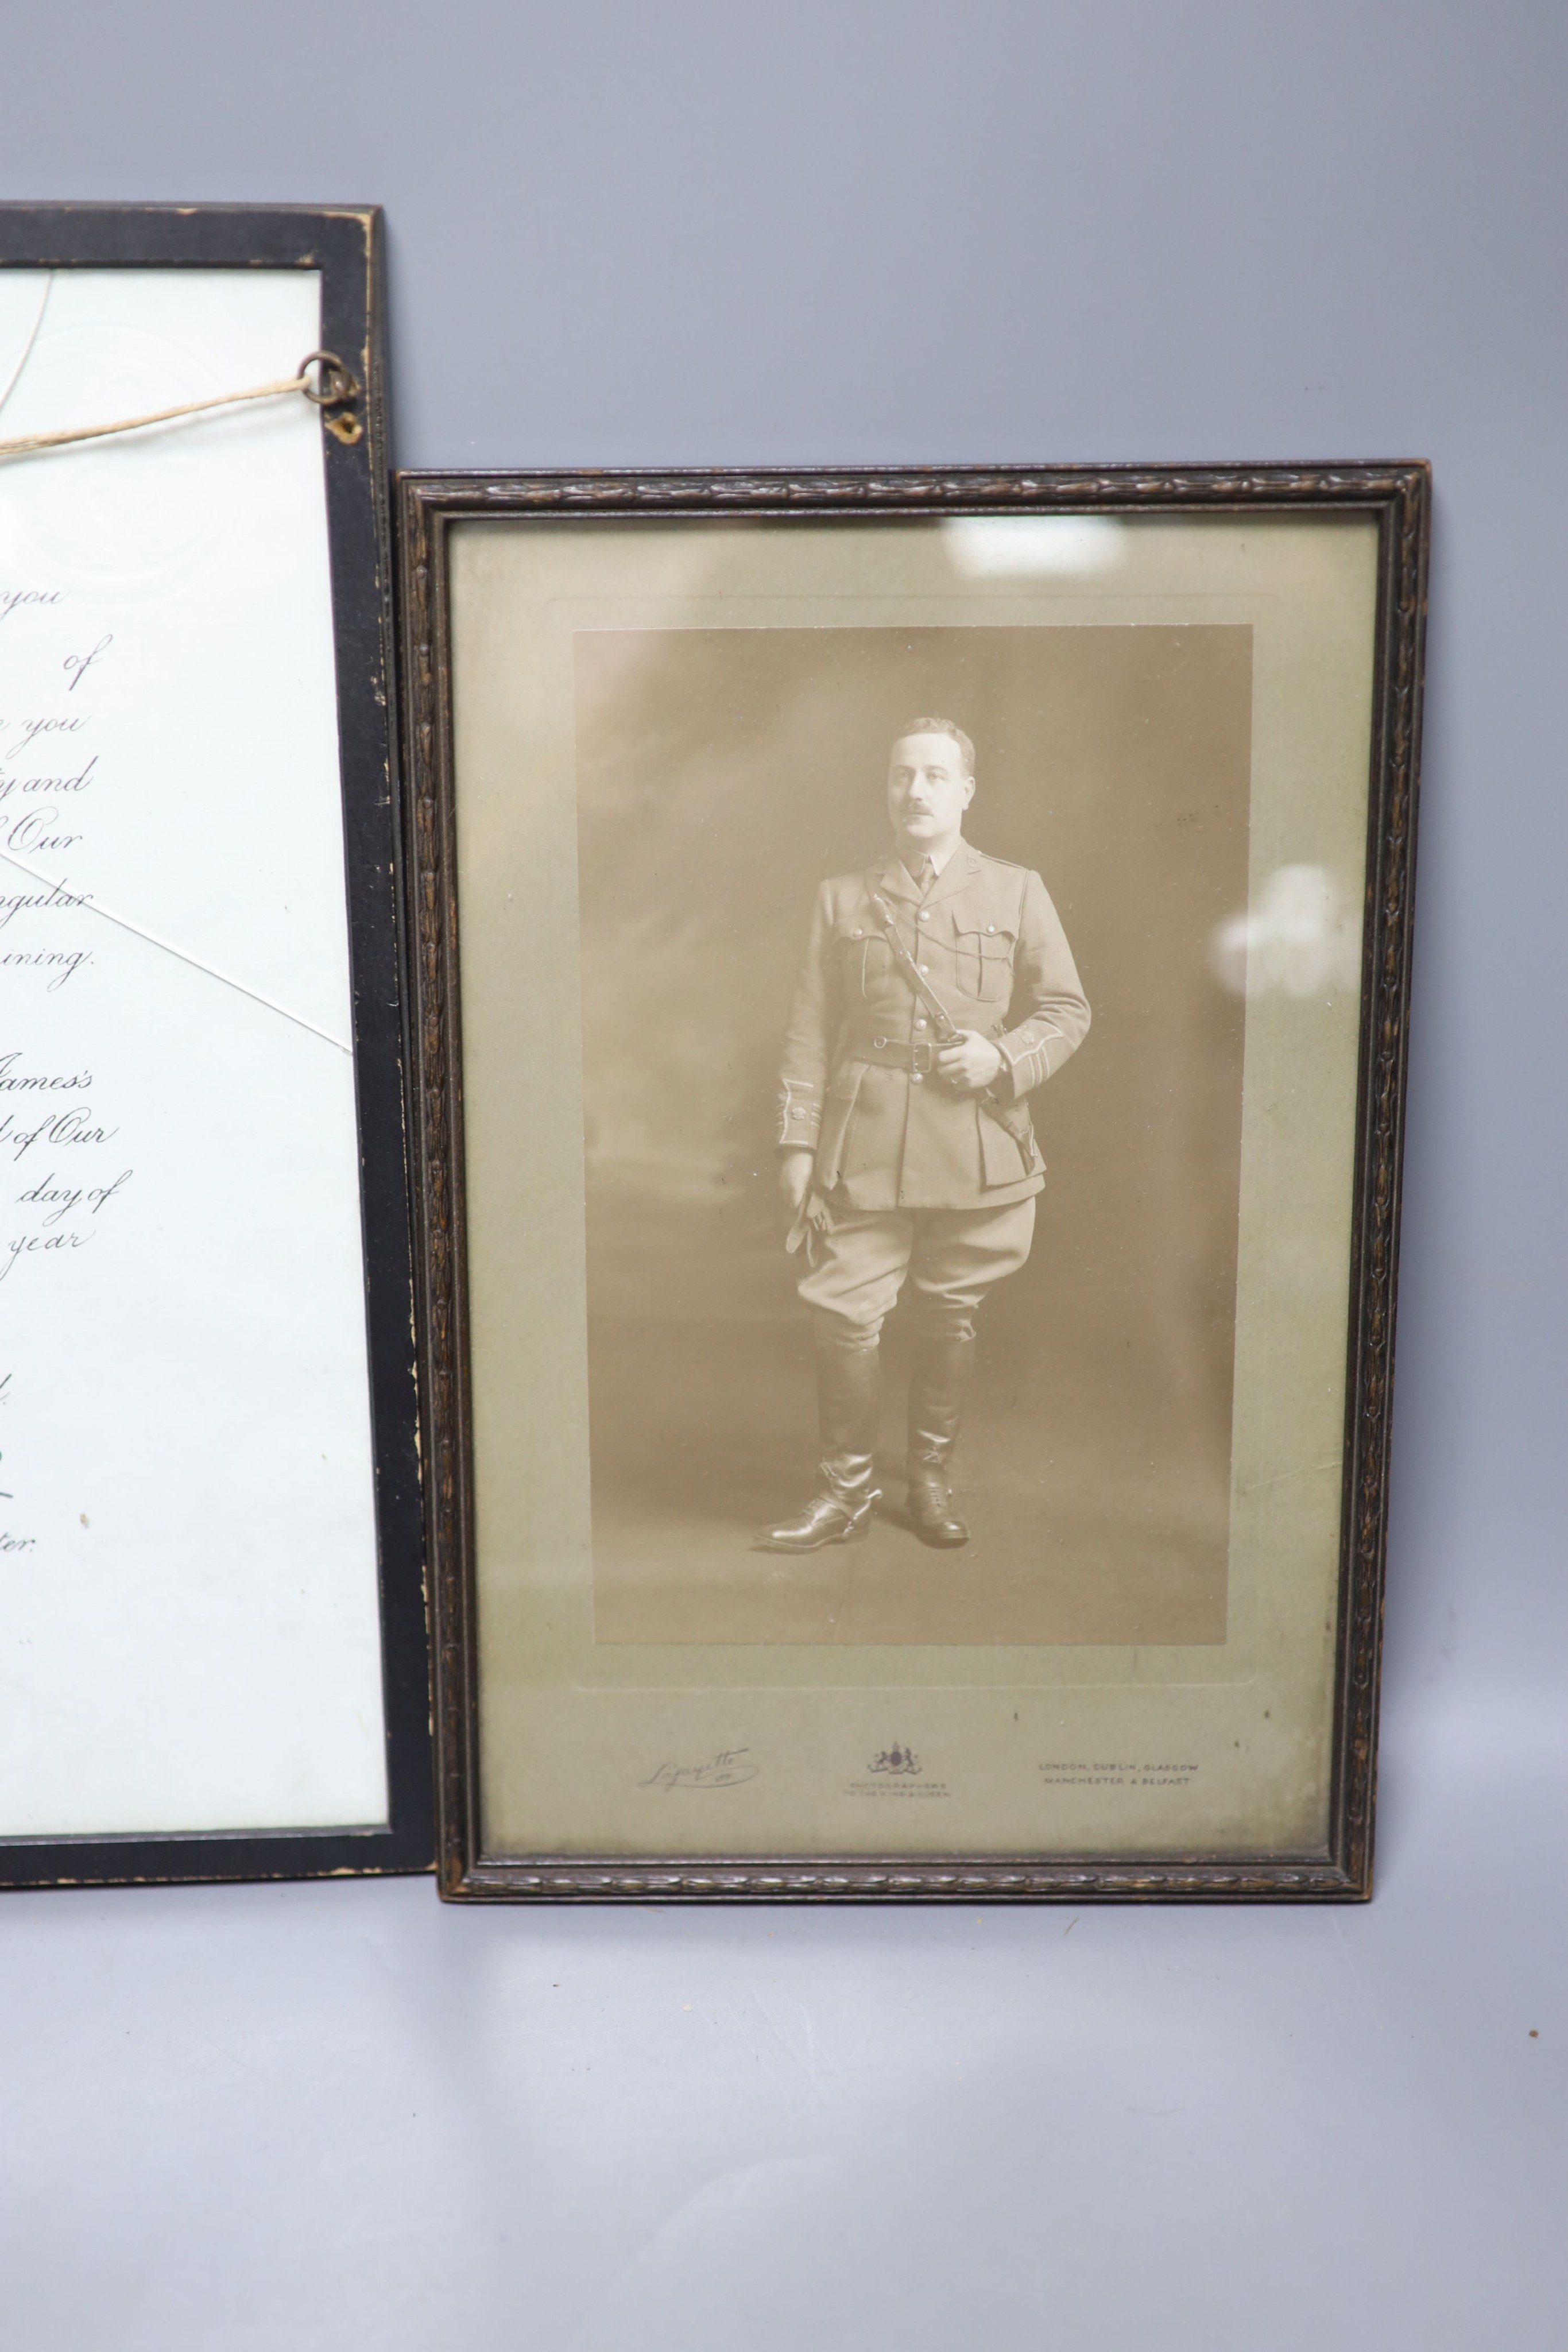 you
of
you
and
Our
ining.
James's
of Our
day of
year
ter.
Lafayette
PHOTOGRAPHERS
TO THE KING & QUEEN
LONDON, DUBLIN, GLASGOW
MANCHESTER & BELFAST